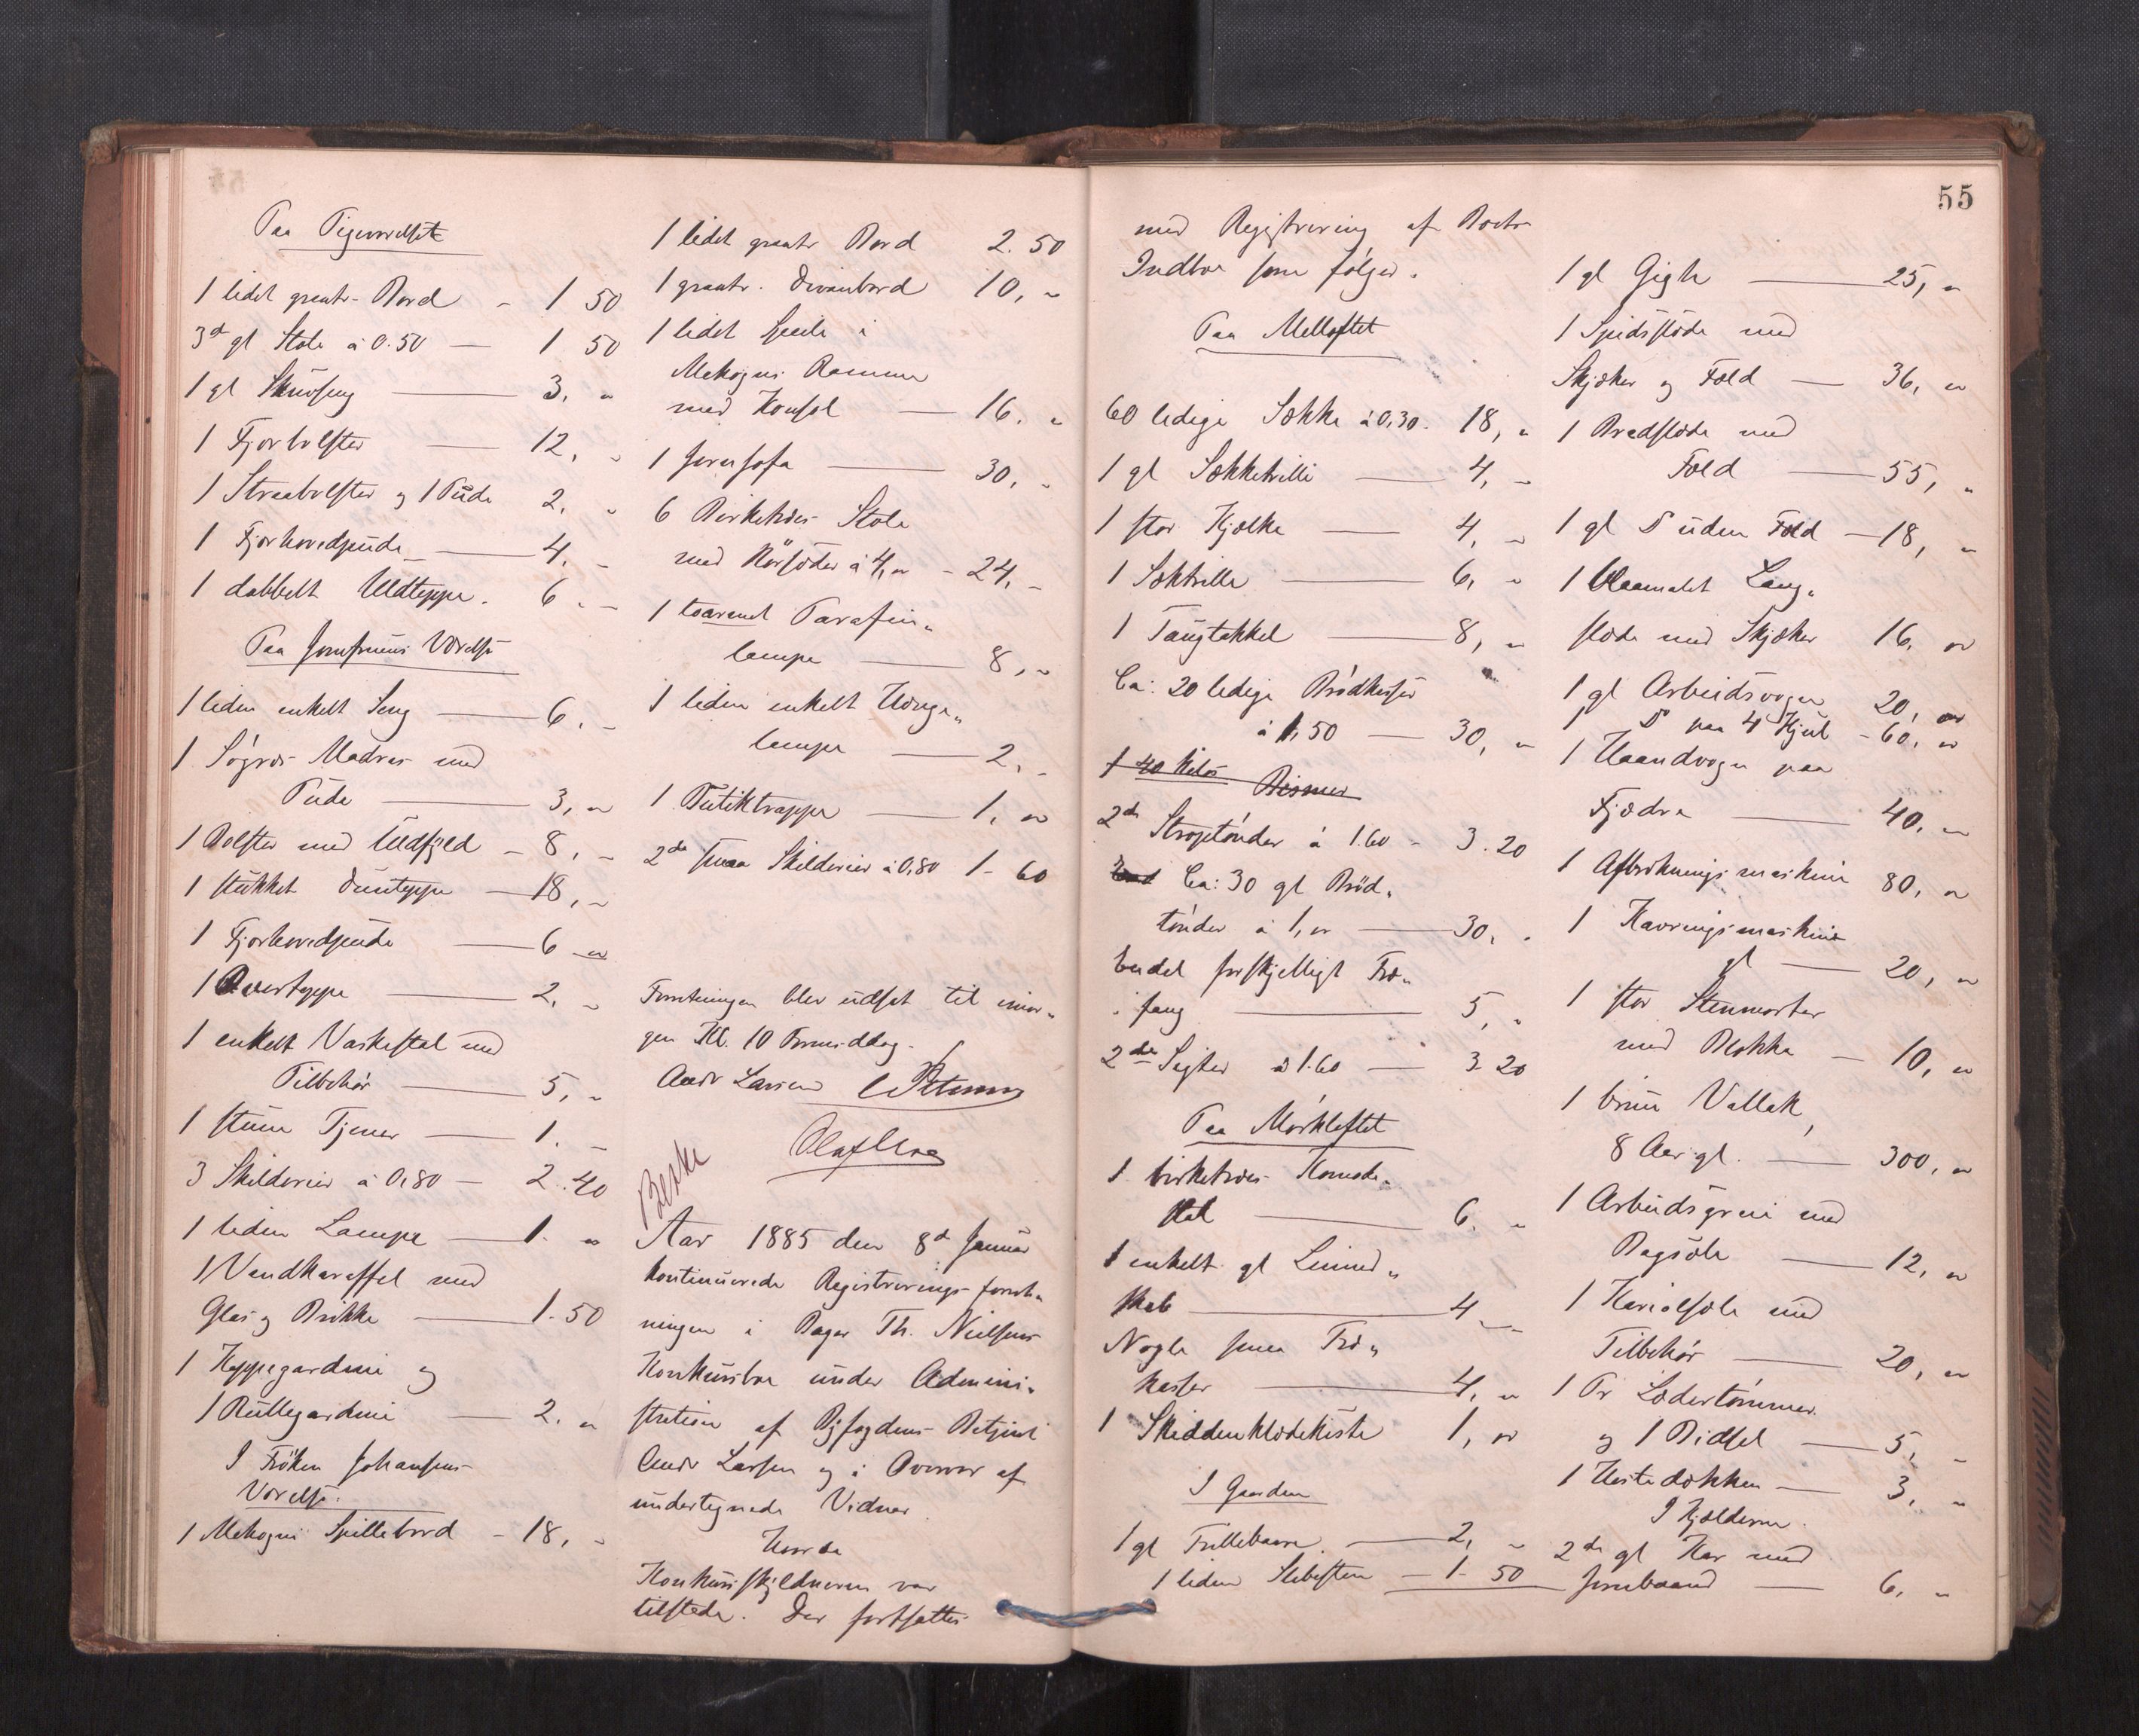 Paa Pigeværelset
1 lidet grantr. Bord - 1 50
3de gl Stole à 0.50 — 1 50
1 gl Skuvseng — 3, "
1 Fjærbolster — 12, "
1 Straabolster og 1 Pude 2, "
1 Fjærhovedpude — 4, "
1 dobbelt Uldteppe. 6 . "
Paa Jomfruens Værelse
1 liden enkelt Seng — 6, "
1 Søgræs Madras med
Pude — 3, "
1 Bolster med Uldfyld - 8, "
1 stukket Duntæppe — 18, "
1 Fjærhovedpude — 6 "
1 Overteppe — 2, "
1 enkelt Vaskestel med
Tilbehør — 5, "
1 stum Tjener — 1. "
3 Skilderier à 0,80 — 2.40
1 liden Lampe — 1. "
1 Vandkaraffel med
Glas og Brikke — 1.50
1 Kappegardine og
1 Rullegardin — 2. "
I Frøken Johansens
Værelse.
1 Mahogni Spillebord - 18, "
1 lidet grantr Bord 2.50
1 grantr. Divanbord 10, "
1 lidet Speile i
Mahogni Ramme
med Konsol — 16. "
1 Jernsofa — 30, "
6 Birketræs Stole
med Rørsæder à 4, " - 24, "
1 toarmet Parafin„
lampe — 8, "
1 liden enkelt Hænge„
lampe — 2, "
1 Butiktrappe — 1, "
2de smaa Skilderier à 0,80 1 - 60
Forretningen blev udsat til imor„
gen Kl. 10 Formiddag.
Andr Larsen
Aar 1885 den 8de Januar
kontinuerede Registrerings-forret„
ningen i Bager Th. Nielsens
Konkursbo under Admini„
stration af Byfogdens Betjent
Andr Larsen og i Overvær af
undertegnede Vidner
Hvorda
Konkursskyldneren var
tilstede. Der fortsattes
55
med Registrering af Boets
Indbo som følger.
Paa Melloftet
60 ledige Sække à 0,30. 18, "
1 gl Sækketrille — 4, "
1 stor Kjælke — 4, "
1 Sæktrille — 6, "
1 Taugtakkel — 8, "
Ca: 20 ledige Brødkasser
à 1,50 — 30, "
1 40 Kilos Bismer
2de Stroptønder à 1.60 - 3.20
Ca: 30 gl Brød„
tønder à 1, " — 30, "
Endel forskjelligt Træ„
fang — 5, "
2de Sigter à 1.60 — 3 20
Paa Mørkloftet
1 birketræs Komode„
stel — 6. "
1 enkelt gl Linned„
skab — 4 "
Nogle smaa Træ„
kasser — 4, "
1 Skiddenklædekiste 1, "
I Gaarden
1 gl Trillebaare. — 2, "
1 liden Slibesten — 1 - 50
1 gl Gigh — 25, "
1 Spidsslæde med
Skjæker og Fæld — 36, "
1 Bredslæde med
Fæld — 55, "
1 gl Do uden Fæld — 18, "
1 blaamalet Lang„
slæde med Skjæker 16, "
1 gl Arbeidsvogn 20, "
1 Do paa 4 Hjul - 60, "
1 Haandvogn paa
Fjædre — 40, "
1 Afbrækningsmaskine 80, "
1 Kavringsmaskine
gl — 20, "
1 stor Stenmorter
med Blokke — 10, "
1 brun Vallak,
8 Aar gl. — 300, "
1 Arbeidsgreie med
Bagsæle — 12, "
1 Kariolsæle med
Tilbehør — 20, "
1 Pr Lædertømmer
og 1 Bidsel — 5, "
1 Hestedækken — 3, "
I Kjælderne.
2de gl Kar med
Jernbaand — 6, "